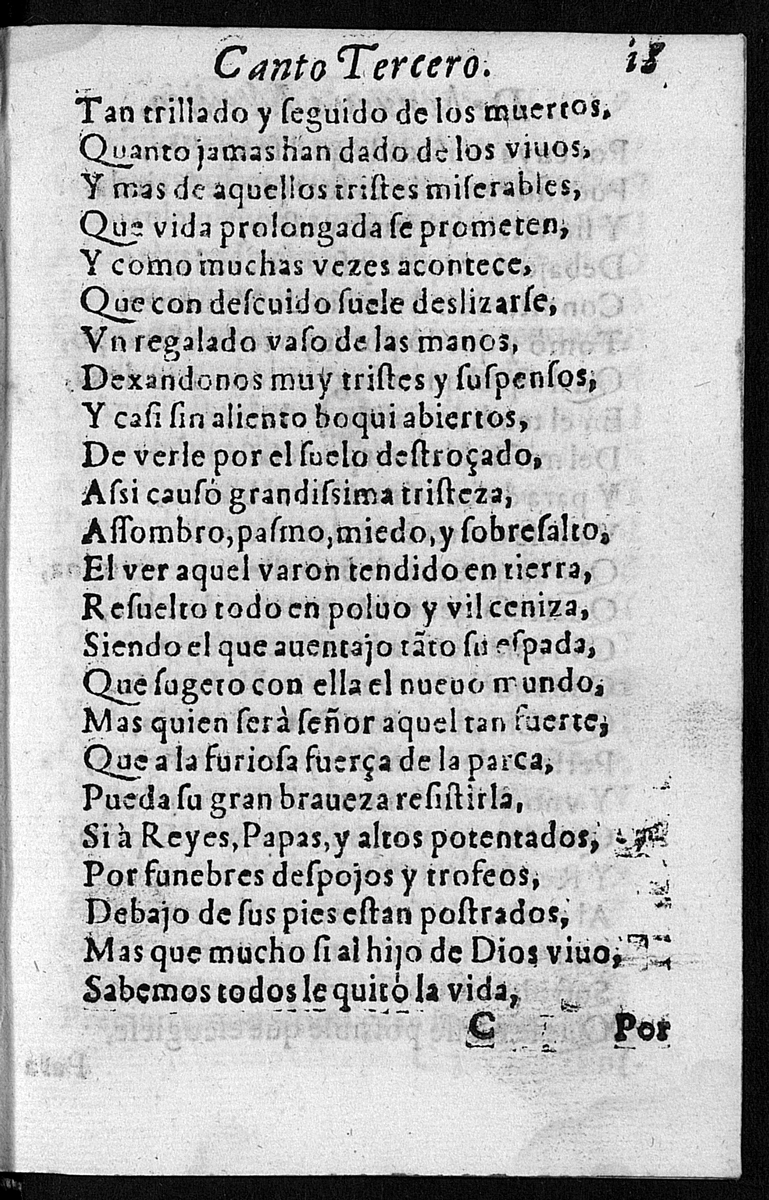 Canto Tercero. 18
Tan trillado y ſeguido de los muertos,
Quanto jamas han dado de los viuos,
Y mas de aquellos triſtes miſerables,
Que vida prolongada ſe prometen,
Y como muchas vezes acontece,
Que con deſcuido ſuele deslizarſe,
Vn regalado vaſo de las manos,
Dexandonos muy triſtes y ſuſpenſos,
Y caſi ſin aliento boqui abiertos,
De verle por el ſuelo deſtroçado,
Aſsi causò grandiſsima triſteza,
Aſſombro, paſmo, miedo, y ſobreſalto,
El ver aquel varon tendido en tierra,
Reſuelto todo en poluo y vil ceniza,
Siendo el que auentajo tãto ſu eſpada,
Que ſugeto con ella el nueuo mundo,
Mas quien ſerà ſeñor aquel tan fuerte,
Que a la furioſa fuerça de la parca,
Pueda ſu gran braueza reſiſtirla,
Si à Reyes, Papas, y altos potentados,
Por funebres deſpojos y trofeos,
Debajo de ſus pies eſtan poſtrados,
Mas que mucho ſi al hijo de Dios viuo,
Sabemos todos le quitò la vida,
C Por